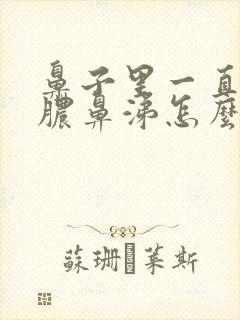 鼻子里一直
膿鼻涕怎麼
蘇珊·萊斯